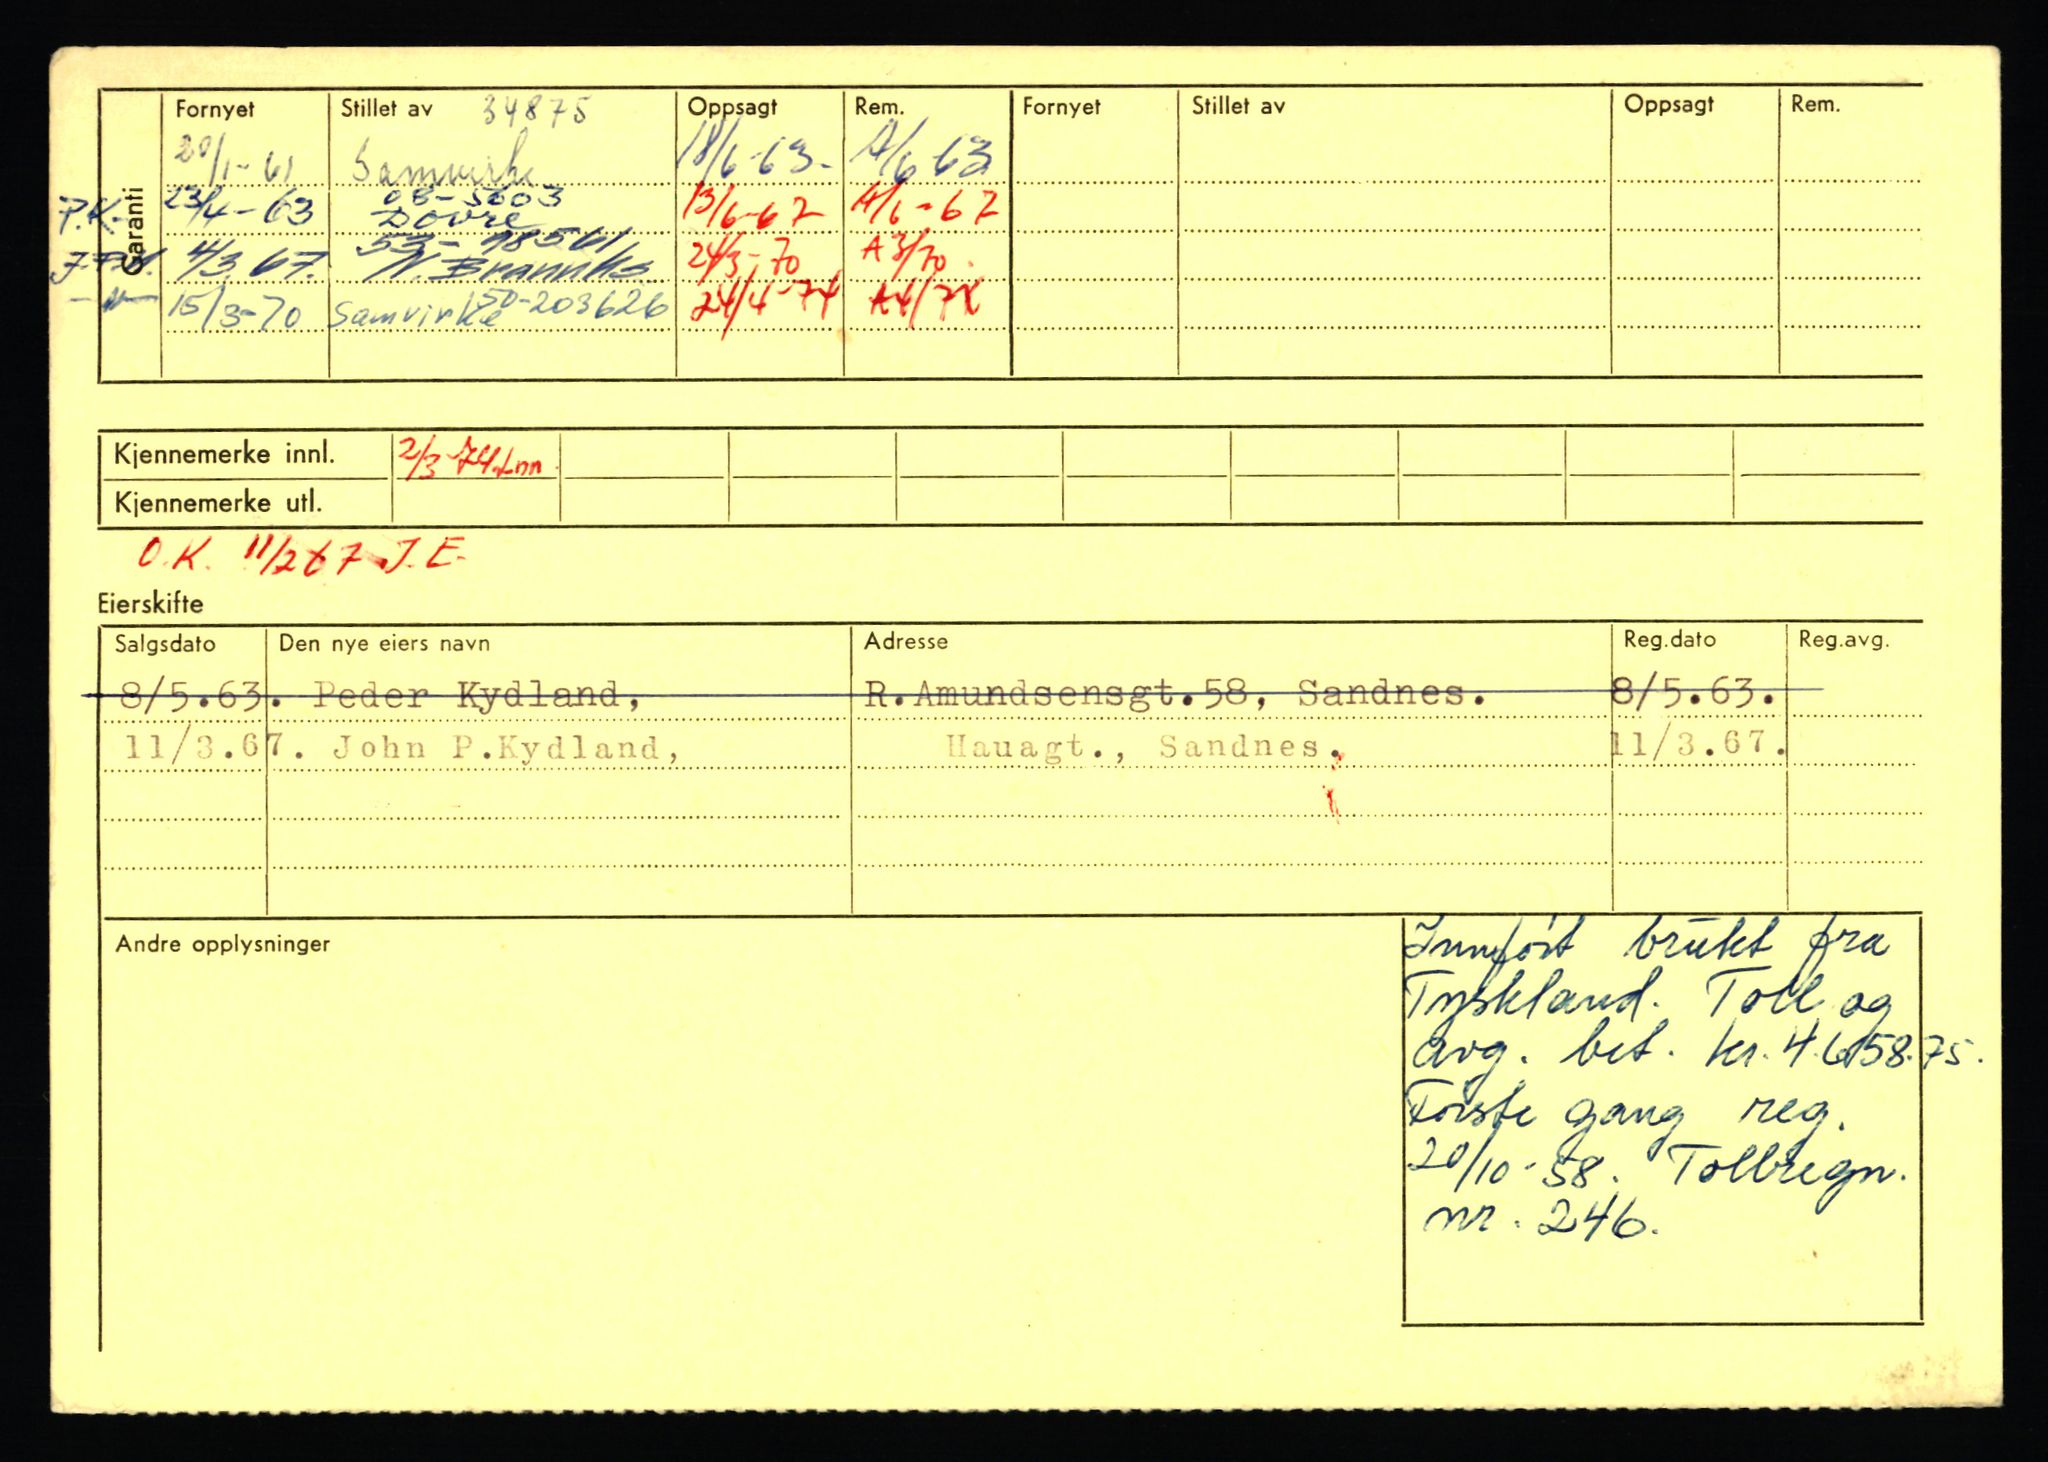 Garanti
Fornyet Stillet av 34875 Oppsagt Rem. Fornyet Stillet av Oppsagt Rem.
20/1-61 Samvirke 18/6-63- A/6 63
P.K. 23/4-63 08-5003 Dovre 13/6-67 A/6-67
4/3 67. 53-48561 N. Brannks 24/3-70 A3/70.
15/3-70 Samvirke 50-203626 24/4-74 A4/74
Kjennemerke innl. 2/3 74
Kjennemerke utl.
O.K. 11/2 67 J.E.
Eierskifte
Salgsdato Den nye eiers navn Adresse Reg.dato Reg.avg.
8/5.63. Peder Kydland, R.Amundsensgt.58, Sandnes. 8/5.63.
11/3.67. John P.Kydland, Hauagt., Sandnes. 11/3.67.
Andre opplysninger
Innført brukt fra
Tyskland. Toll og
avg. bet. kr. 4.658.75.
Første gang reg.
20/10-58. Tollregn.
nr. 246.